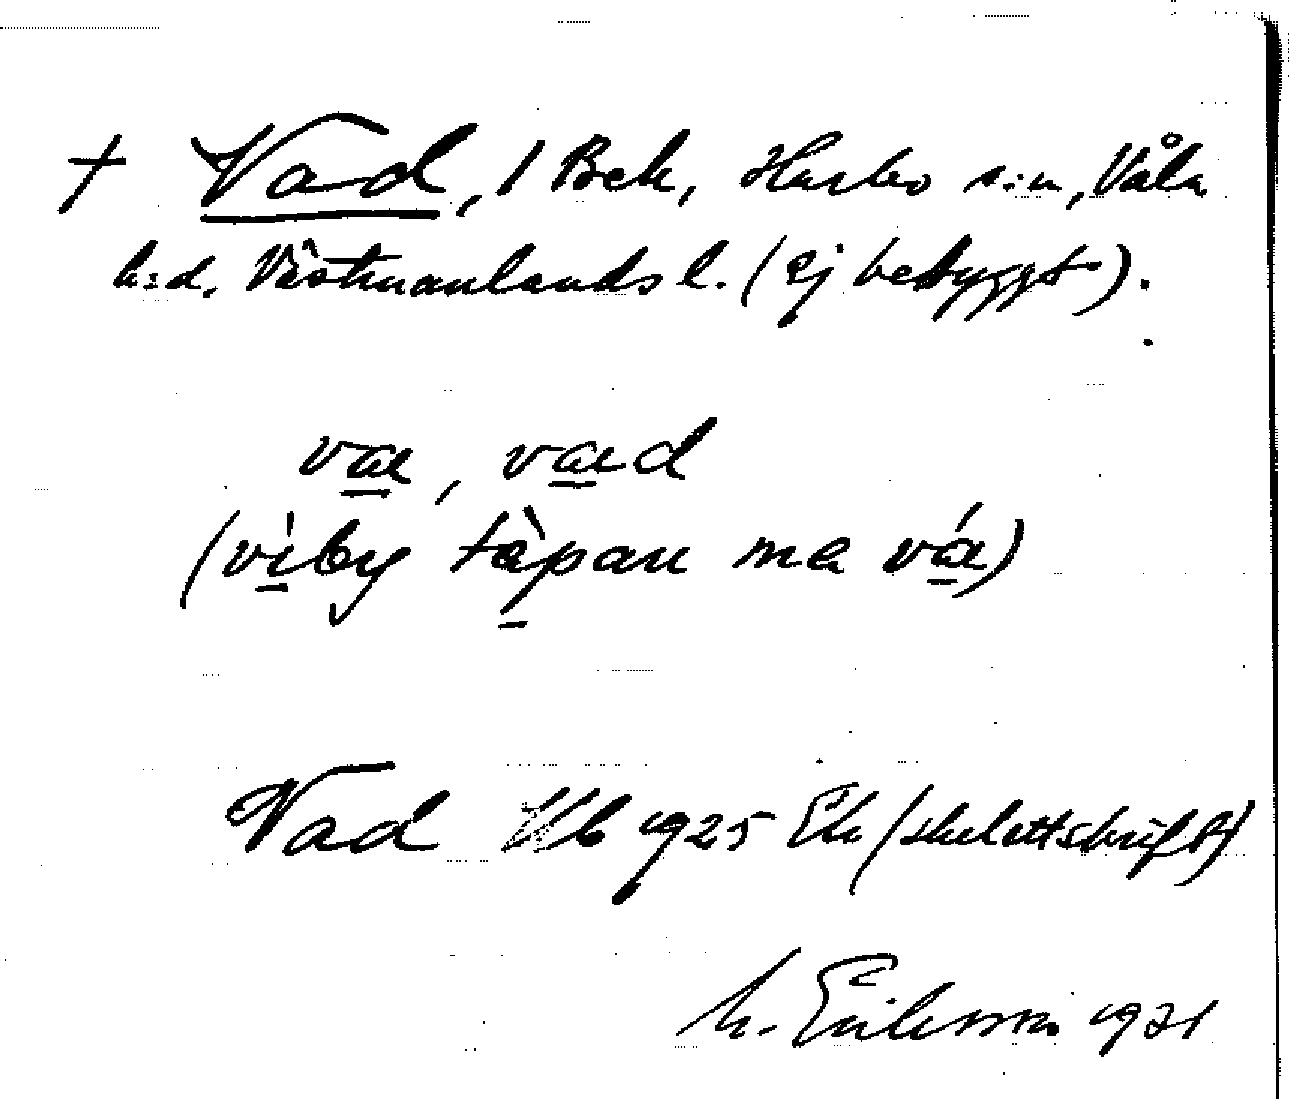 † Vad, 1 Bek, Harbo s:n, Våla
h:d, Västmanlands l. (ej bebyggt).
væ, væd
(viby tàpan ma væ)
Vad Hb 1925 Ek (skelettskrift)
M. Eriksson 1931